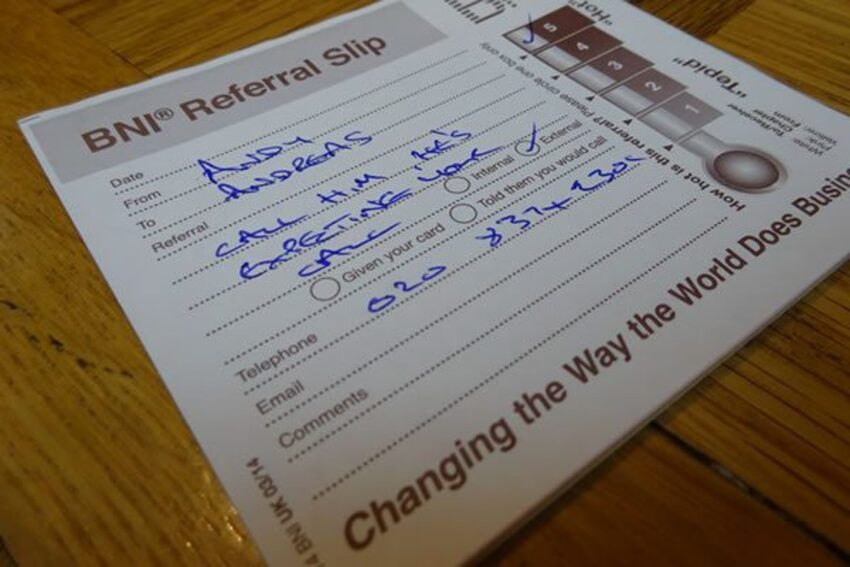 BNI® Referral Slip
Date
From ANDY
To ANDREAS
Referral
CALL HIM HE'S
EXPECTING YOUR
CALL
Internal External
Given your card Told them you would call
Telephone 020 837
Email
Comments
Changing the Way the World Does Busin
4 BNI UK 03/14
How hot is this referral? Please circle one box only
1 2 3 4 5
"Tepid" "Hot"
White: To Receiver
Pink: Chapter
Yellow: From